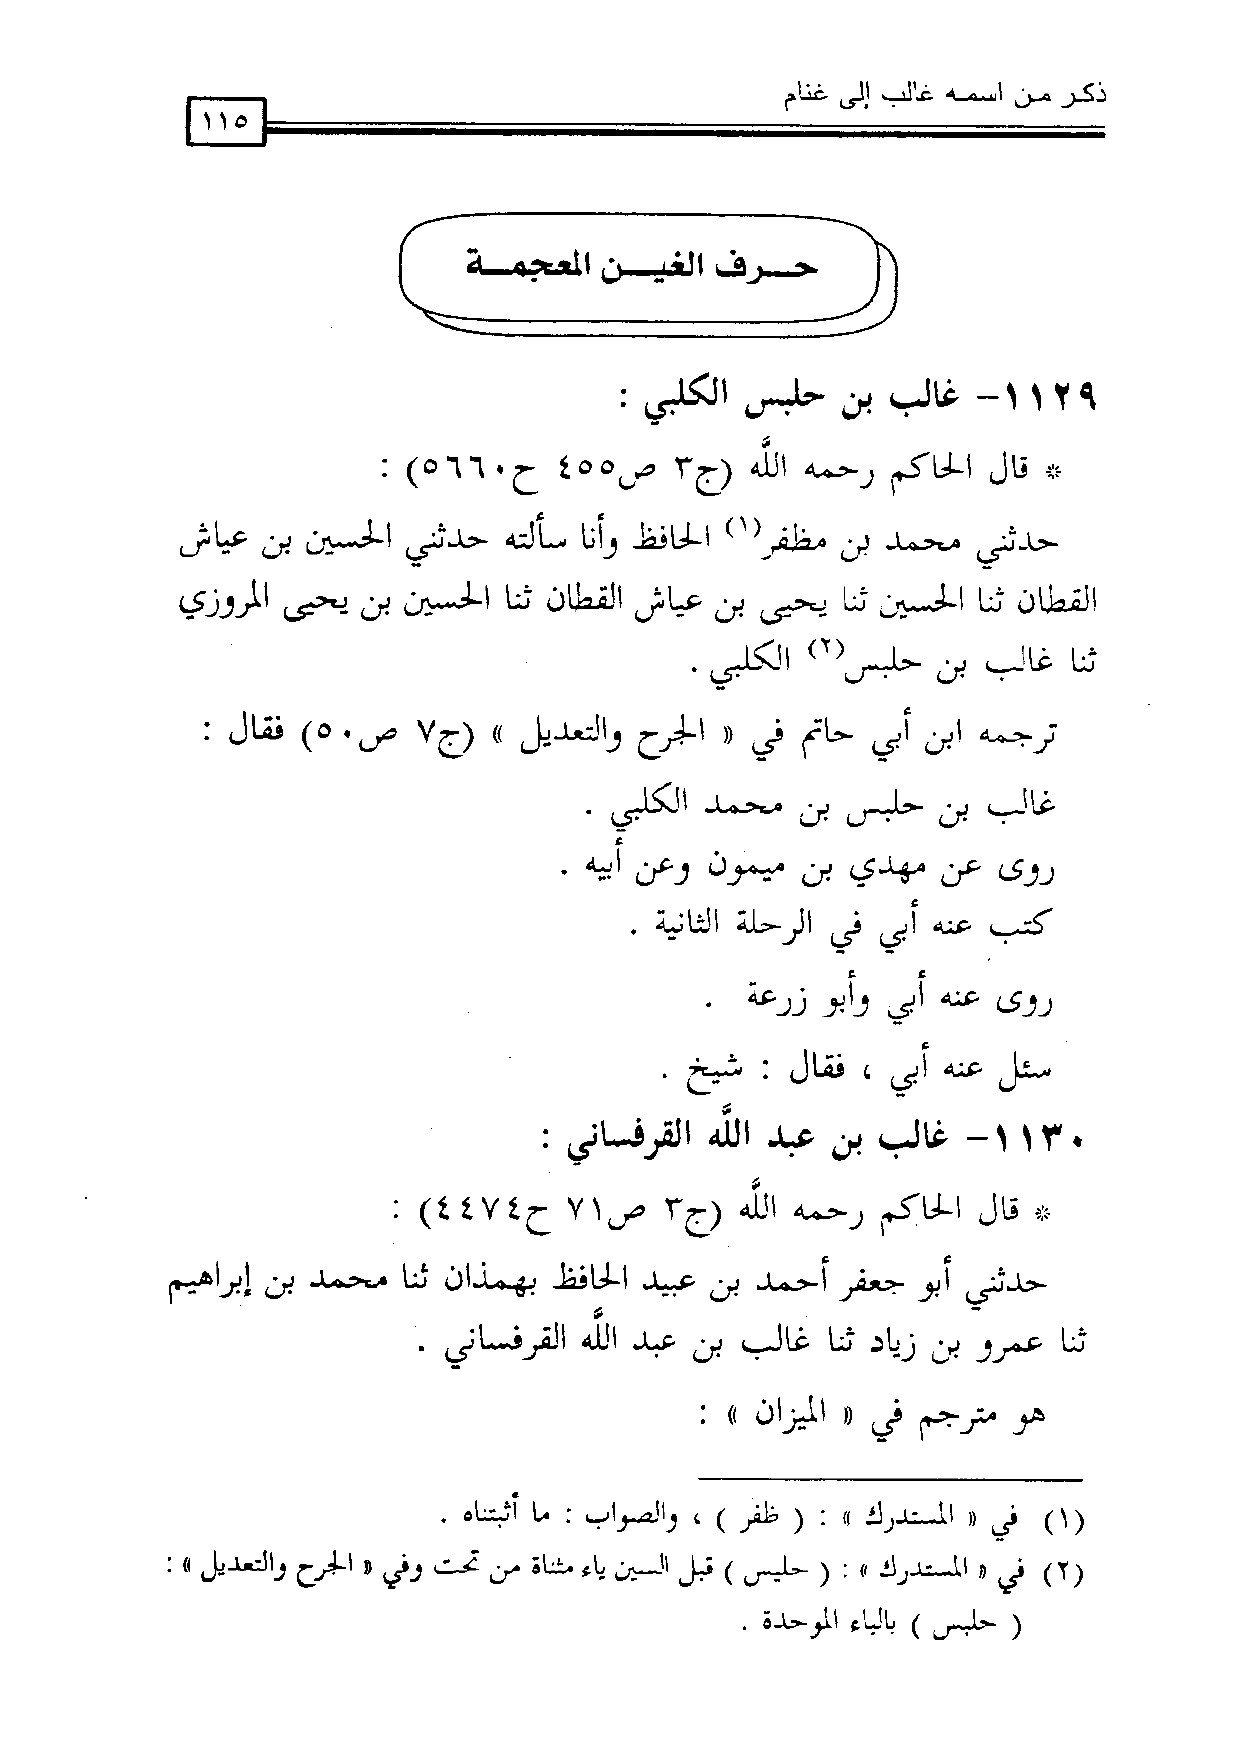 ذكر من اسمه غالب إلى غنام
١١٥
حرف الغين المعجمة
١١٢٩- غالب بن حلبس الكلبي :
* قال الحاكم رحمه اللَّه (ج٣ ص٤٥٥ ح٥٦٦٠) :
حدثني محمد بن مظفر(١) الحافظ وأنا سألته حدثني الحسين بن عياش
القطان ثنا الحسين ثنا يحيى بن عياش القطان ثنا الحسين بن يحيى المروزي
ثنا غالب بن حلبس(٢) الكلبي .
ترجمه ابن أبي حاتم في « الجرح والتعديل » (ج٧ ص٥٠) فقال :
غالب بن حلبس بن محمد الكلبي .
روى عن مهدي بن ميمون وعن أبيه .
كتب عنه أبي في الرحلة الثانية .
روى عنه أبي وأبو زرعة .
سئل عنه أبي ، فقال : شيخ .
١١٣٠- غالب بن عبد اللَّه القرفساني :
* قال الحاكم رحمه اللَّه (ج٣ ص٧١ ح٤٤٧٤) :
حدثني أبو جعفر أحمد بن عبيد الحافظ بهمذان ثنا محمد بن إبراهيم
ثنا عمرو بن زياد ثنا غالب بن عبد اللَّه القرفساني .
هو مترجم في « الميزان » :
(١) في « المستدرك » : ( ظفر ) ، والصواب : ما أثبتناه .
(٢) في « المستدرك » : ( حليس ) قبل السين ياء مثناة من تحت وفي « الجرح والتعديل » :
( حلبس ) بالباء الموحدة .